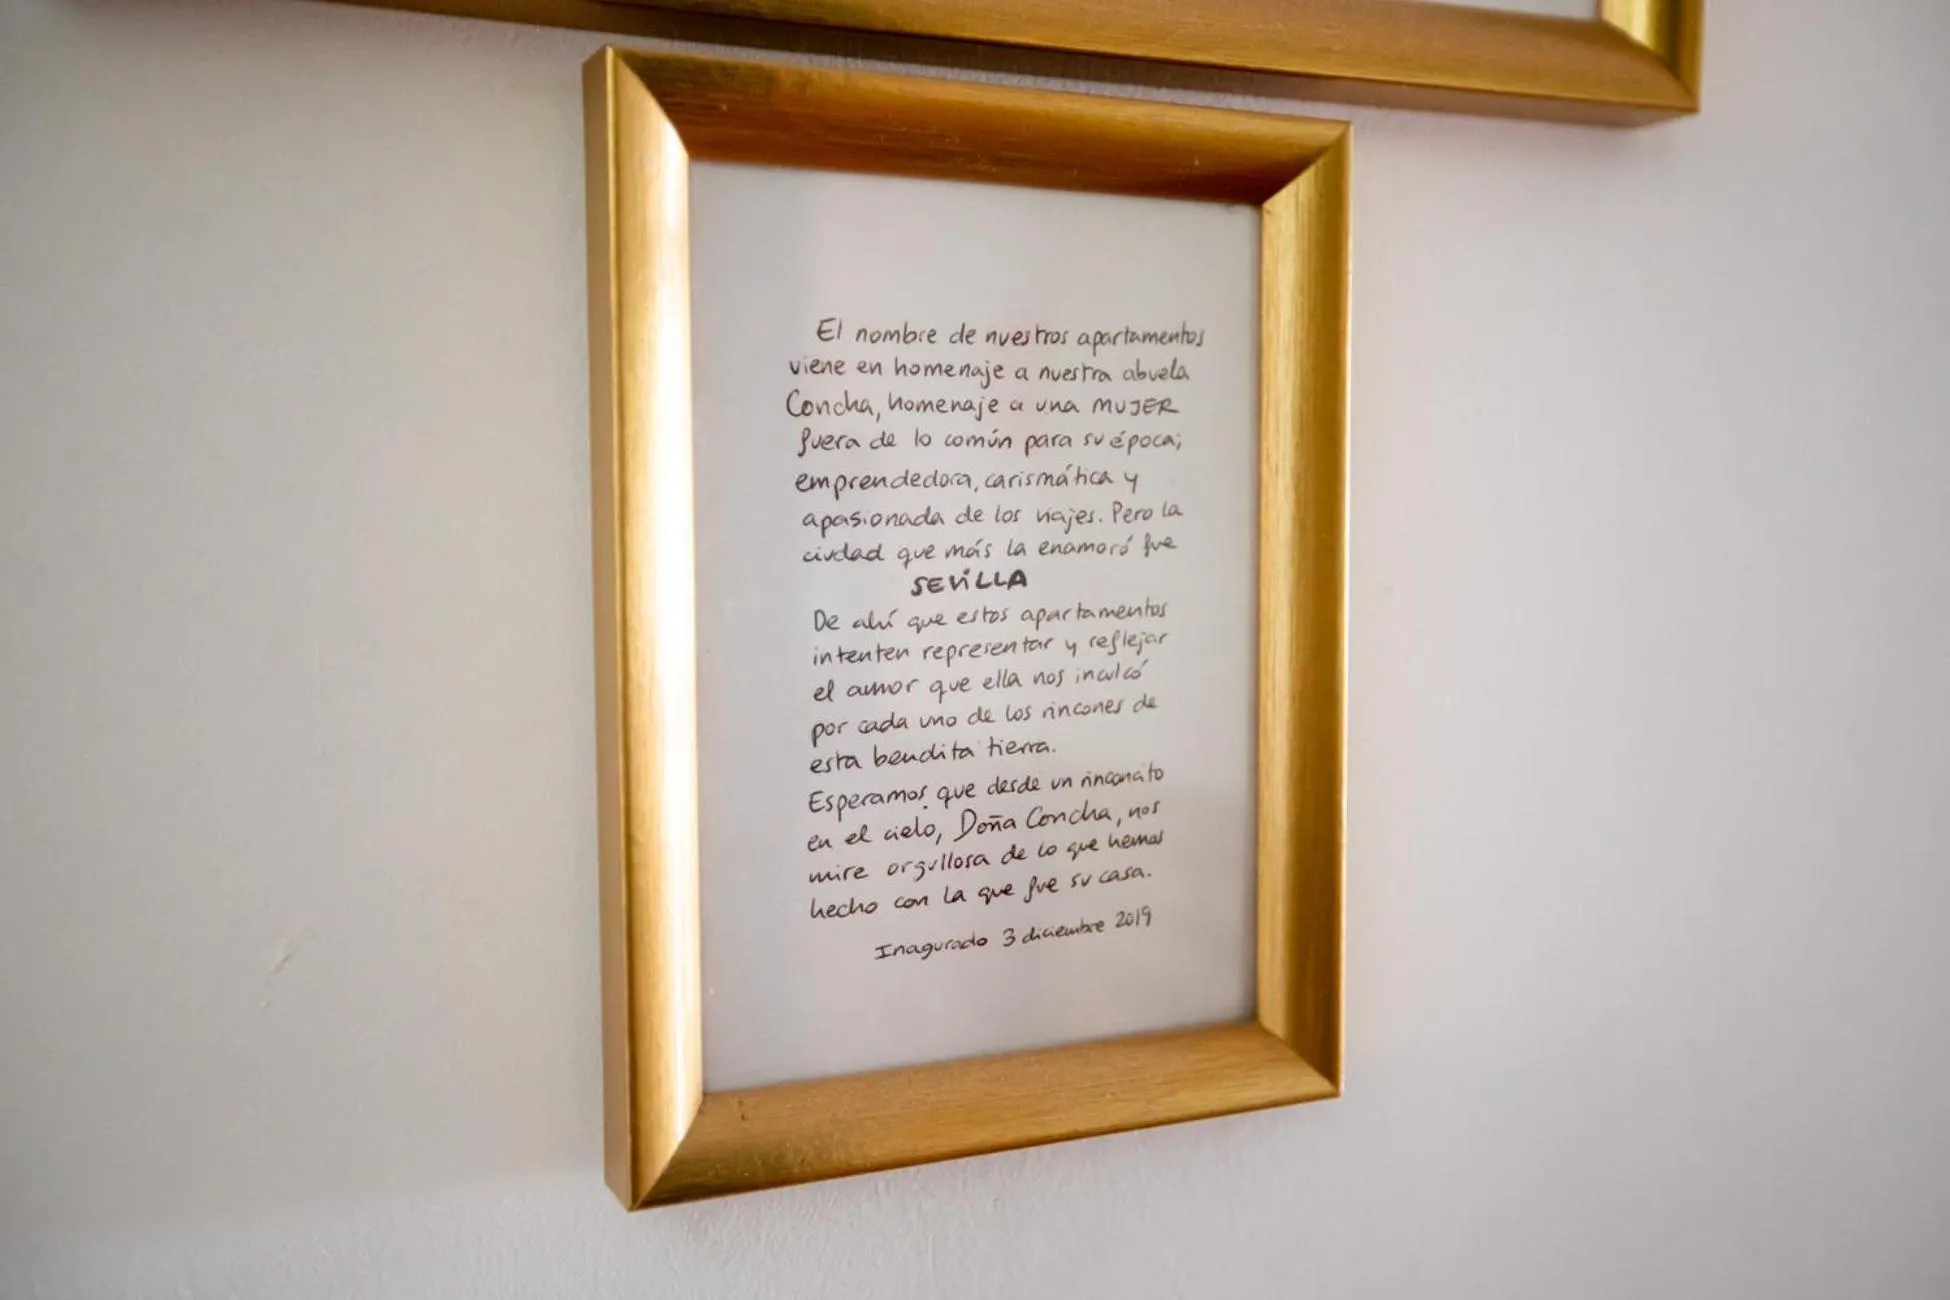 El nombre de nuestros apartamentos
viene en homenaje a nuestra abuela
Concha, homenaje a una MUJER
fuera de lo común para su época;
emprendedora, carismática y
apasionada de los viajes. Pero la
ciudad que más la enamoró fue
SEViLLA
De ahí que estos apartamentos
intenten representar y reflejar
el amor que ella nos inculcó
por cada uno de los rincones de
esta bendita tierra.
Esperamos que desde un rinconcito
en el cielo, Doña Concha, nos
mire orgullosa de lo que hemos
hecho con la que fue su casa.
Inagurado 3 diciembre 2019